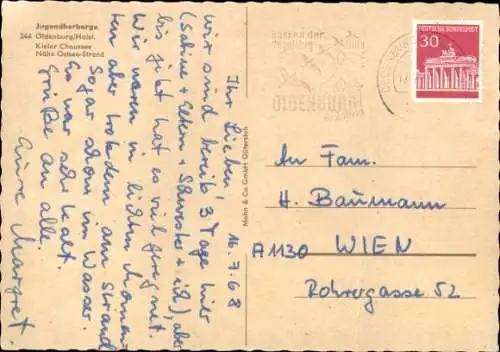 Jugendherberge
244 Oldenburg/Holst.
Kieler Chaussee
Nähe Ostsee-Strand
16.7.68
Ihr Lieben,
wir sind bereits 3 Tage hier
(Sabine + Eltern + Schwester + ich), aber
bis jetzt hat es viel geregnet.
Wir waren in lichten Momen
ten aber trotzdem am Strand
Sogar schon im Wasser.
So war sehr kalt.
Grüße an alle.
Eure Margret.
Mohn & Co GmbH Gütersloh
OLDENBURG
DEUTSCHE BUNDESPOST
30
An Fam.
H. Baumann
A1130 WIEN
Rohrergasse 52